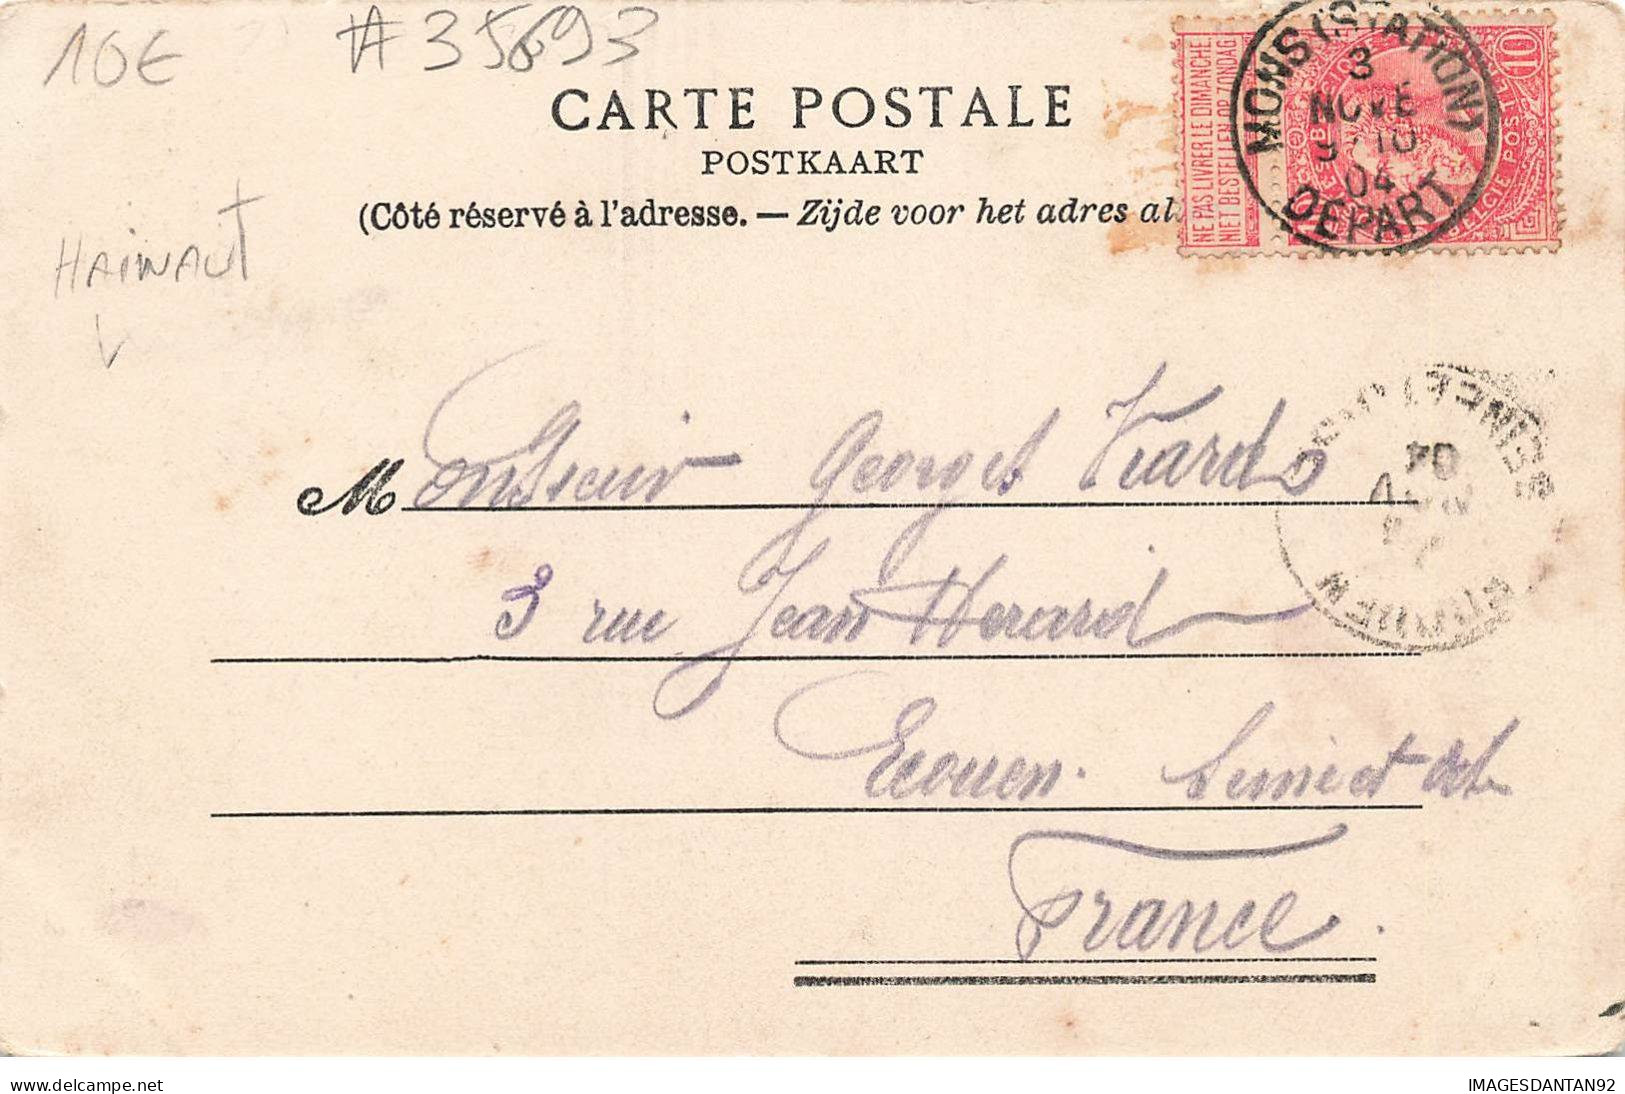 10€ #35693
CARTE POSTALE
POSTKAART
(Côté réservé à l'adresse. — Zijde voor het adres al
NE PAS LIVRER LE DIMANCHE.
NIET BESTELLEN OP ZONDAG
10
BELGIE POSTE
MONS (STATION)
3
NOVE
04
DEPART
HAINAUT
Monsieur Georges Viard
3 rue Jean
Ecouen. Seine et
France.
04
delcampe.net
IMAGESDANTAN92